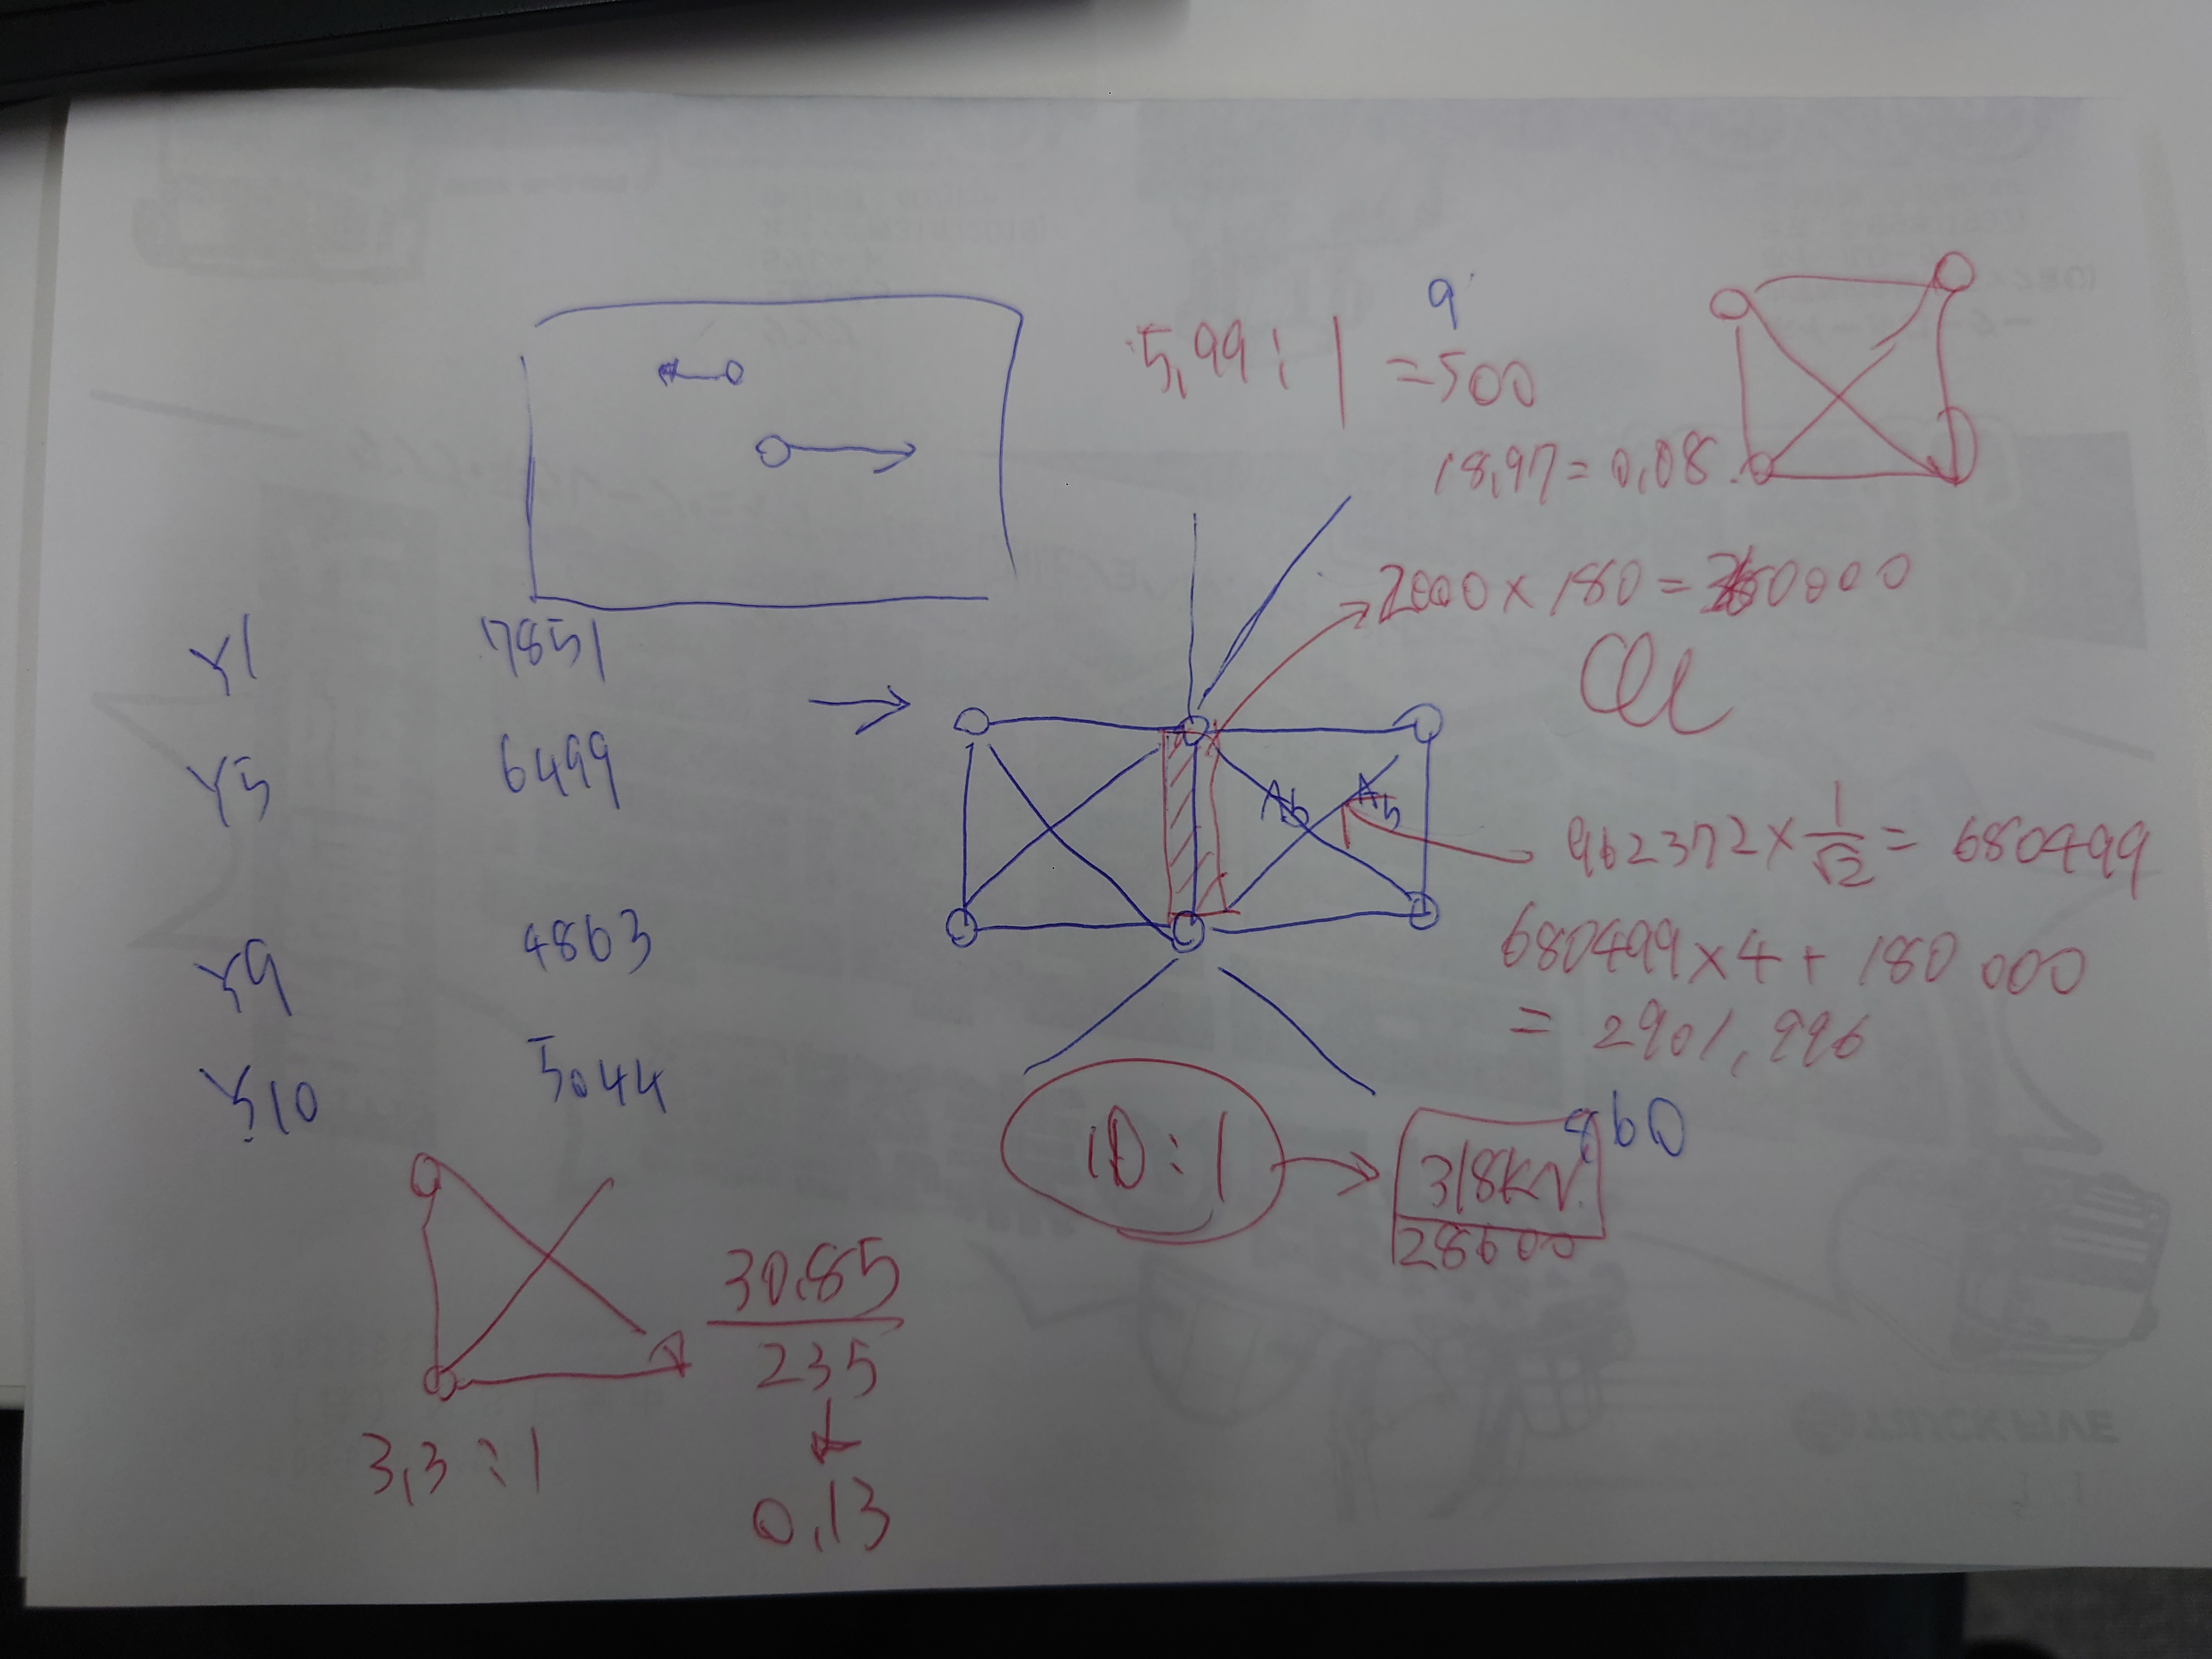 9
5,99 : 1 = 500
18,97 = 0,08
2000 x 180 = 360000
Y1 7851
Y5 6499
Y9 4863
Y10 5044
Ab Ab
962372 x 1/√2 = 680499
680499 x 4 + 180 000
= 2901,996
10 : 1
860
318KN
28600
30.85
235
0,13
3,3 : 1